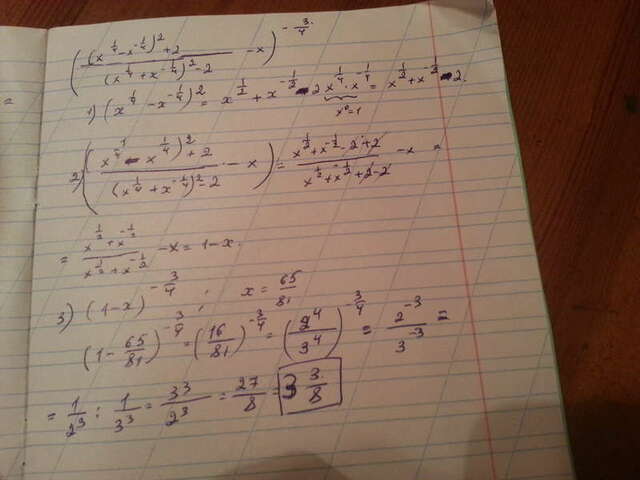 (((x^{1/4} - x^{-1/4})^2 + 2) / ((x^{1/4} + x^{-1/4})^2 - 2) - x)^{-3/4}
1) (x^{1/4} - x^{-1/4})^2 = x^{1/2} + x^{-1/2} - 2 x^{1/4} · x^{-1/4} = x^{1/2} + x^{-1/2} - 2.
x^0 = 1
2) (((x^{1/4} - x^{1/4})^2 + 2) / ((x^{1/4} + x^{-1/4})^2 - 2) - x) = (x^{1/2} + x^{-1/2} - 2 + 2) / (x^{1/2} + x^{-1/2} + 2 - 2) - x =
= (x^{1/2} + x^{-1/2}) / (x^{1/2} + x^{-1/2}) - x = 1 - x.
3) (1 - x)^{-3/4}, x = 65/81
(1 - 65/81)^{-3/4} = (16/81)^{-3/4} = (2^4/3^4)^{-3/4} = 2^{-3}/3^{-3} =
= 1/2^3 : 1/3^3 = 3^3/2^3 = 27/8 = 3 3/8